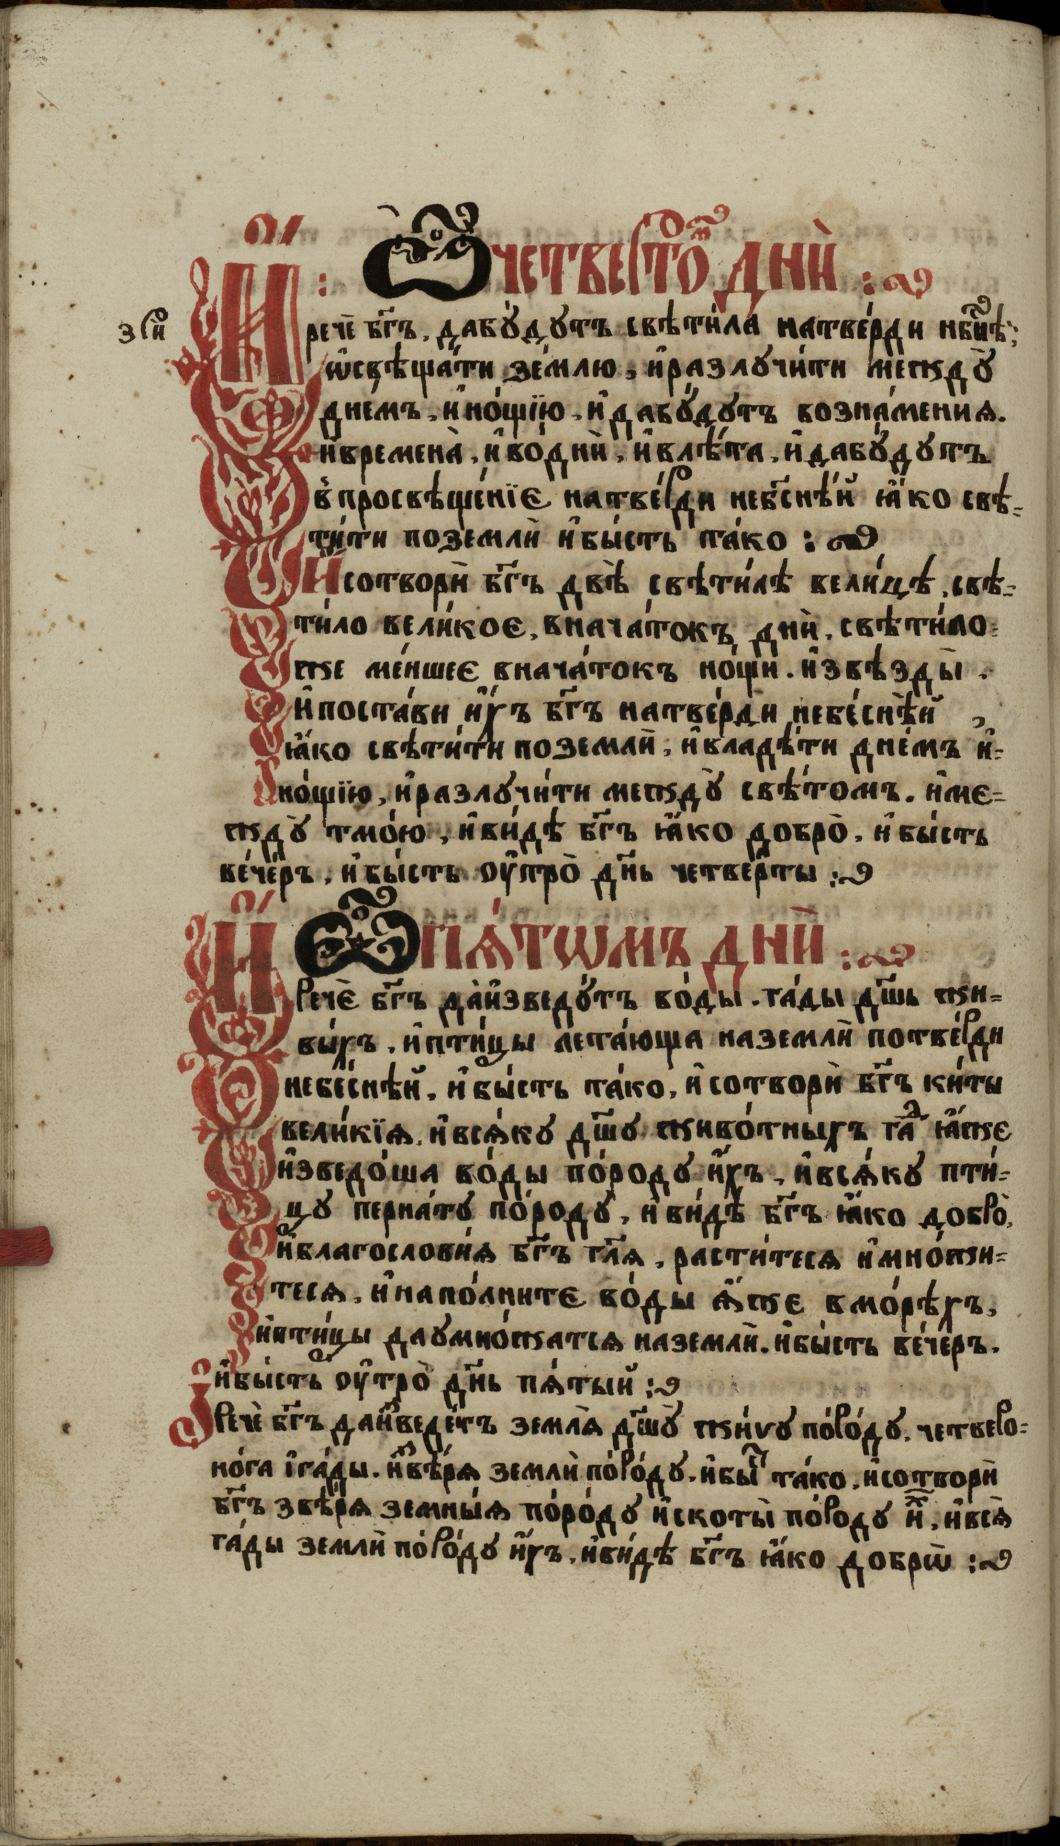 Ѿ четвертом дни :
И рече бг҃ъ, да бу́дутъ свѣти́ла на тве́рди нбⷭ҇нѣй,
ѡ҆свѣща́ти зе́млю, и҆ разлучи́ти междꙋ̀
дне́мъ, и҆ но́щїю, и҆ да бу́дутъ во зна́мения.
и҆ времена̀, и҆ во дни̑, и҆ в лѣ́та, и҆ да бу́дутъ
в просвѣще́нїе на тве́рди небⷭ҇нѣй ꙗ҆́ко свѣ-
ти́ти по земли̑ и҆ бы́сть та́ко :
И҆ сотвори̑ бг҃ъ двѣ̀ свѣти́лѣ вели́цѣ, свѣ-
ти́ло вели́кое, в нача́токъ дни̑, свѣти́ло
же ме́ншее в нача́токъ но́щи. и҆ звѣ́зды̀.
И҆ поста́ви и҆̀хъ бг҃ъ на тве́рди небе́снѣй,
ꙗ҆́ко свѣти́ти по земли̑, и҆ владѣ́ти дне́мъ и҆-
но́щїю, и҆ разлучи́ти междꙋ̀ свѣ́томъ. и҆ ме-
ждꙋ̀ тмо́ю, и҆ ви́дѣ бг҃ъ ꙗ҆́ко добро̀, и҆ бы́сть
ве́чѐръ, и҆ бы́сть оу҆́тро̀ дн҃ь четве́рты :
Ѡ пѧ́томъ дни̑ :
И рече̑ бг҃ъ да и҆зведу́тъ во́ды. га́ды дш҃ь жи-
вы́хъ, и҆ пти́цы лета́юща на земли̑ по тве́рди
небе́снѣй, и҆ бы́сть та́ко, и҆ сотвори̑ бг҃ъ ки́ты
вели́кїѧ, и҆ всѧ́ку дш҃у живо́тныхъ гаⷣ ꙗ҆́же
и҆зведо́ша во́ды по́роду и҆̀хъ, и҆ всѧ́ку пти́-
цу перна́ту по́роду, и ви́дѣ бг҃ъ ꙗ҆́ко добро̀,
и҆ благослови́ѧ бг҃ъ гл҃ѧ, расти́тесѧ и҆ мно́жи-
тесѧ, и҆ напо́лните во́ды ꙗ҆́же в мо́рѣхъ,
и҆ пти́цы да умно́жатсѧ на земли̑. и҆ бы́сть ве́черъ.
и҆ бы́сть оу҆́тро̀ дн҃ь пѧ́тый :
И рече̑ бг҃ъ да и҆ⷥведе́тъ землѧ̀ дш҃у̀ жи́ву по́ро́ду, четверо-
но́га і҆ га́ды. и҆ звѣ́рѧ земли̑ по́ро́ду. и҆ быⷭ҇ та́ко, и҆ сотвори̑
бг҃ъ звѣ́рѧ земны́ѧ по́ро́ду и҆ скоты̀ по́роду иⷯ, и҆ всѧ̑
га́ды земли̑ по́ро́ду и҆̀хъ, и҆ ви́дѣ бг҃ъ ꙗ҆́ко добрѡ̀ :